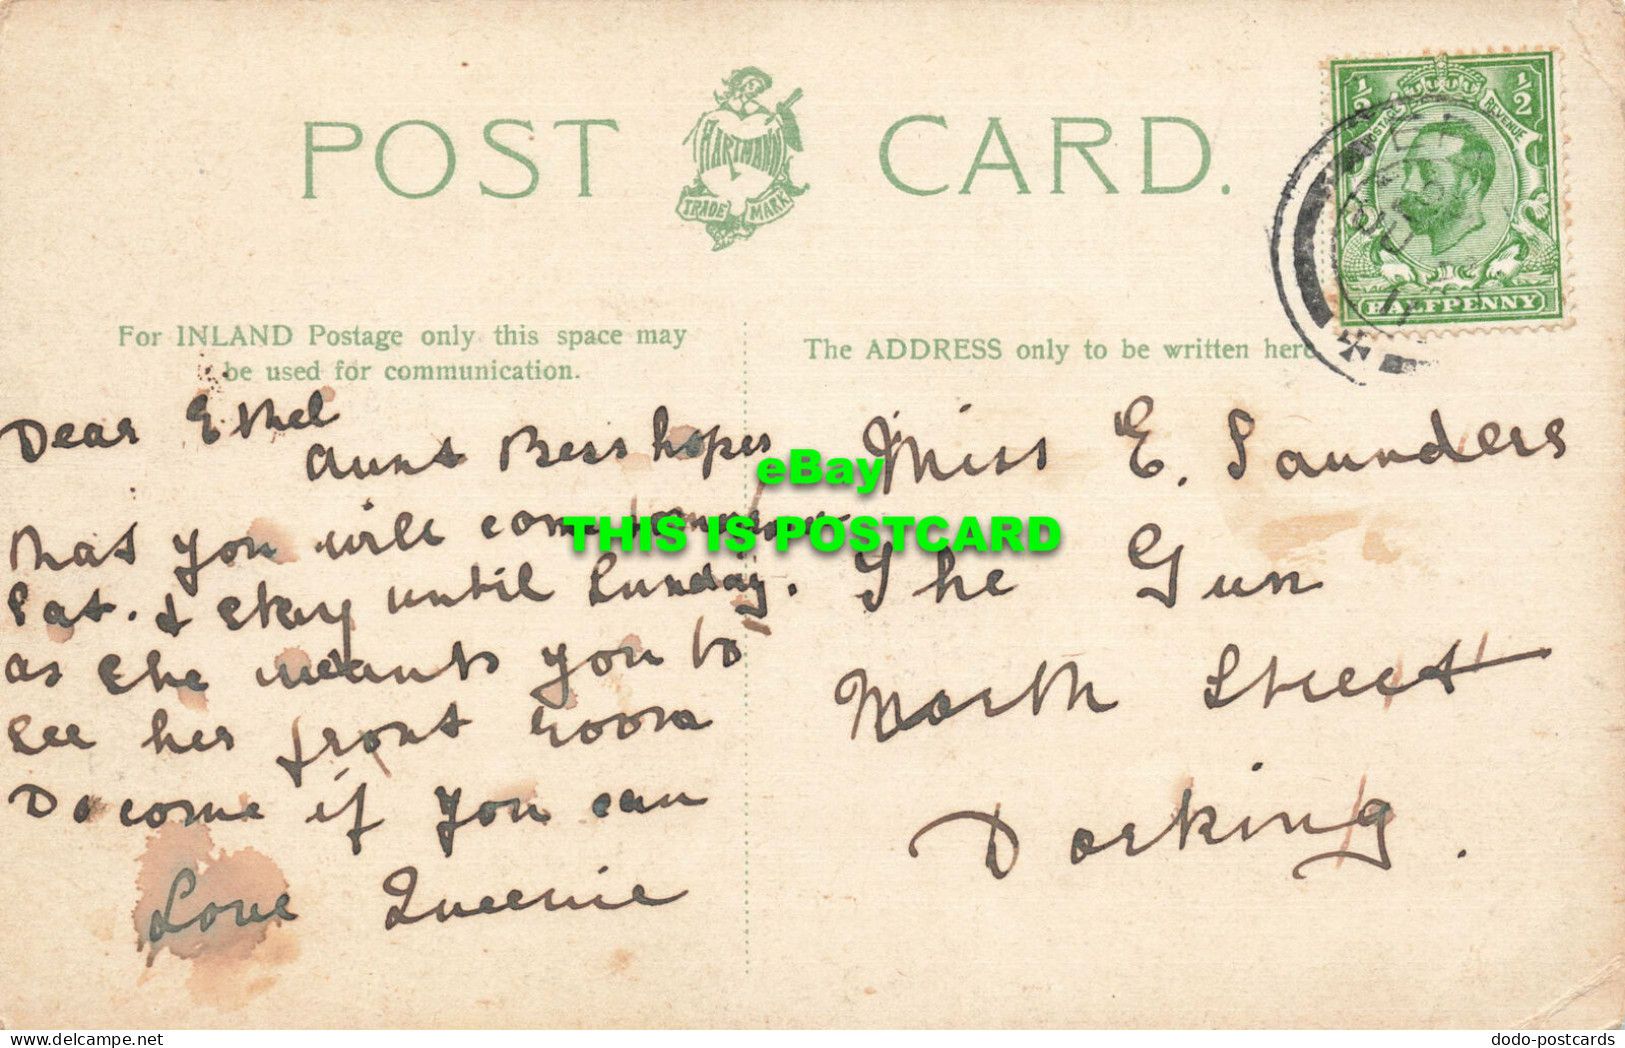 POST CARD.
HARTMANN
TRADE MARK
½ ½
POSTAGE REVENUE
HALFPENNY
For INLAND Postage only this space may
be used for communication.
The ADDRESS only to be written here
Dear Ethel
Aunt Bess hopes
that you will come tomorrow
Sat. & stay until Sunday.
as she wants you to
see her front room
Do come if you can
Love Queenie
Miss E. Saunders
The Gun
North Street
Dorking.
eBay
THIS IS POSTCARD
dodo-postcards